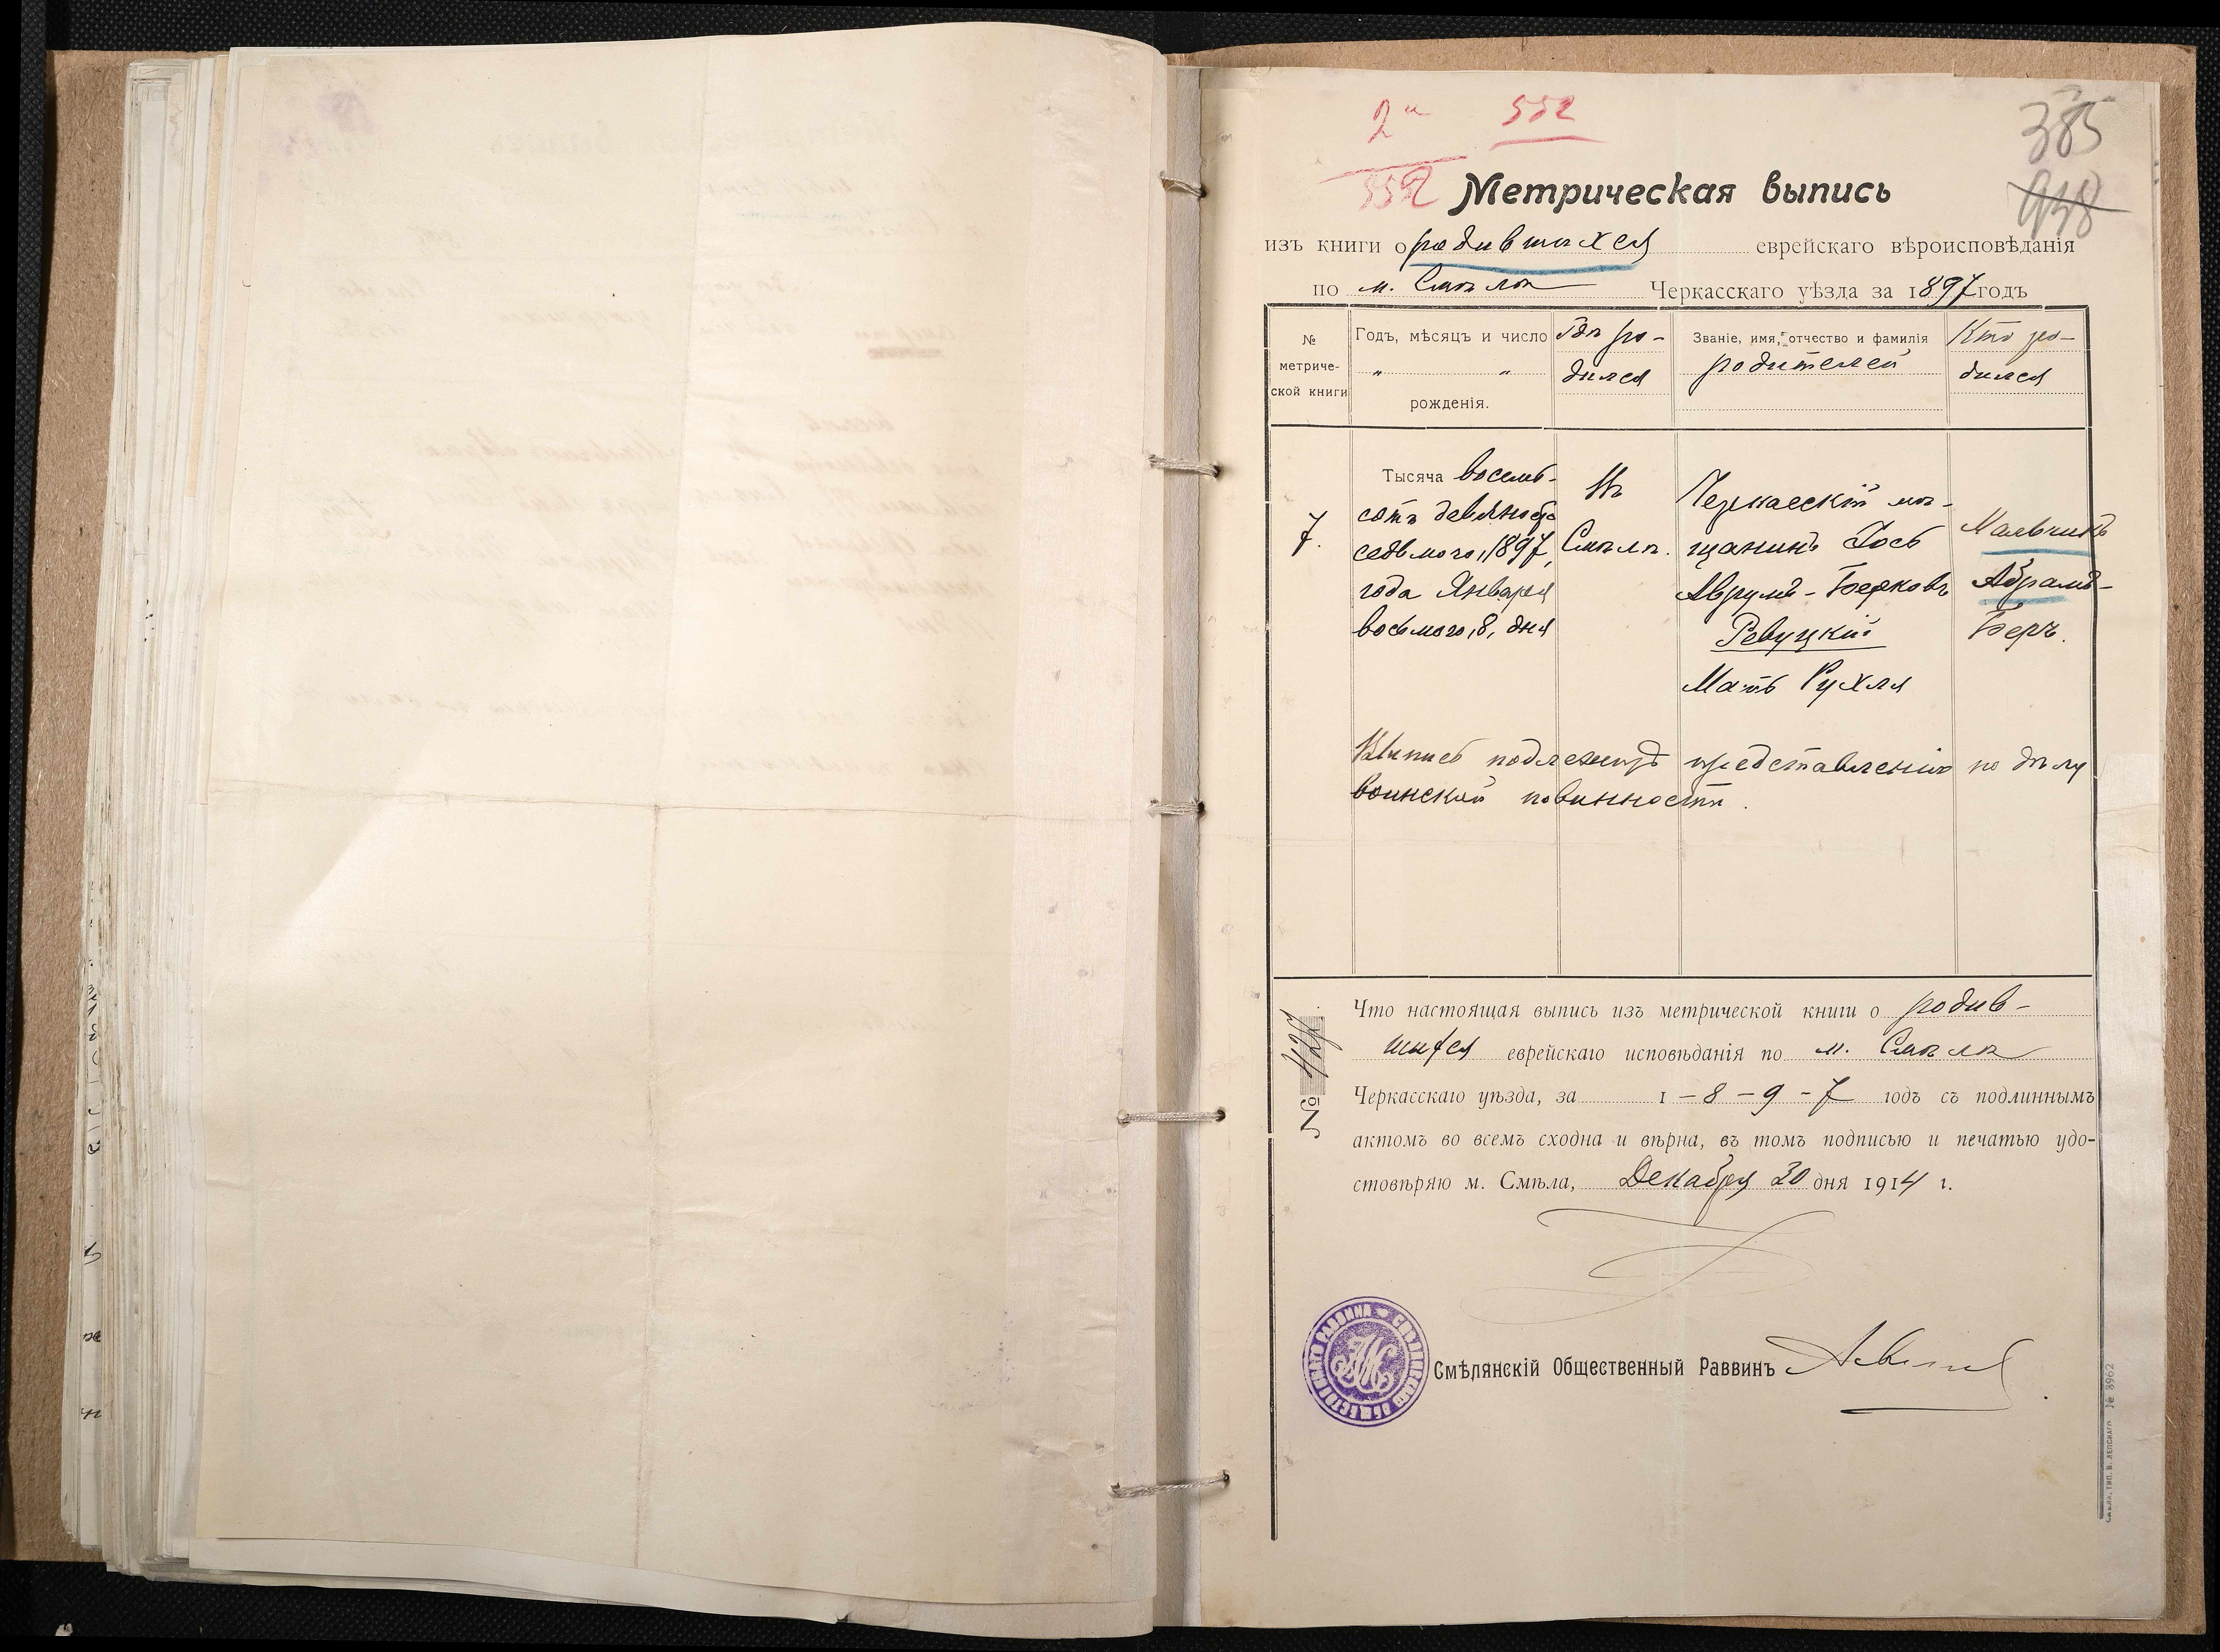 2й 552
552
385
938
Метрическая выпись
изъ книги о родившихся еврейскаго вѣроисповѣданія
по м. Смѣлѣ Черкасскаго уѣзда за 1897 годъ
№ метриче-ской книги
Годъ, мѣсяцъ и число
" "
рожденія.
Гдѣ ро-
дился
Званіе, имя, отчество и фамилія
родителей
Кто ро-
дился
7.
Тысяча восемь-
сотъ девяносто
седьмого, 1897,
года Января
восьмого, 8, дня
Въ
Смѣлѣ.
Черкасскій мѣ-
щанинъ Іось
Аврумъ-Берковъ
Ревуцкій
Мать Рухля
Мальчикъ
Абрамъ-
Беръ.
Выпись подлежитъ представленію по дѣлу
воинской повинности.
№ 427
Что настоящая выпись изъ метрической книги о родив-
шихся еврейскаго исповѣданія по м. Смѣлѣ
Черкасскаго уѣзда, за 1-8-9-7 годъ съ подлиннымъ
актомъ во всемъ сходна и вѣрна, въ томъ подписью и печатью удо-
стовѣряю м. Смѣла, Декабря 30 дня 1914 г.
Смѣлянскій Общественный Раввинъ
Смѣла, тип. В. Лепскаго № 8962